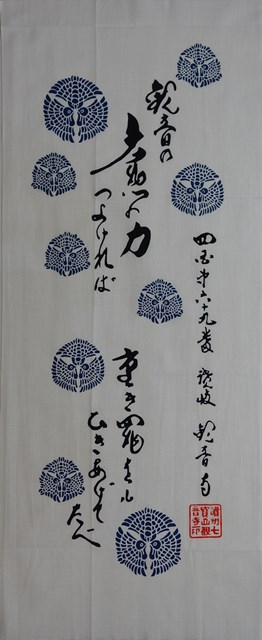 四国第六十九番 讃岐 観音寺
観音の
大悲の力
つよければ
重き罪をも
ひきあげて
たべ